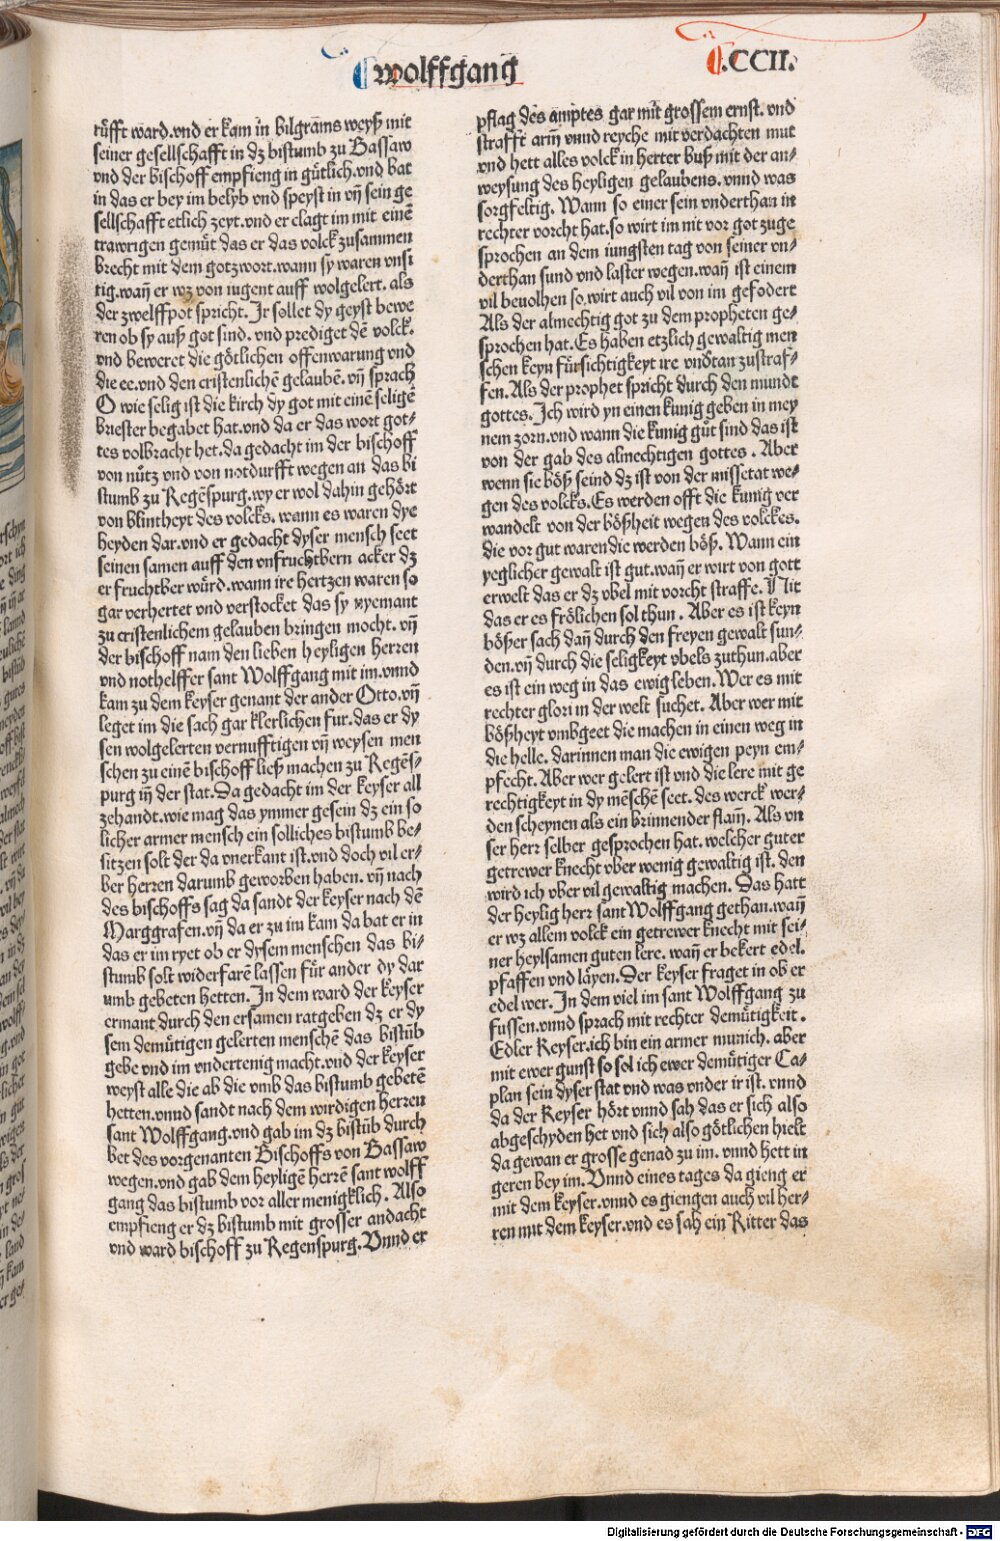 wolffgang
.CCII.
rüfft ward.vnd er kam in bilgrams weyß mit
seiner gesellschafft in dz bistumb zu Bassaw
vnd der bischoff empfieng in gütlich.vnd bat
in das er bey im belyb vnd speyst in vñ sein ge
sellschafft etlich zeyt.vnd er clagt im mit einē
trawrigen gemüt das er das volck zusammen
brecht mit dem gotzwort.wann sy waren vnsi
tig.wañ er wz von iugent auff wolgelert. als
der zwelffpot spricht. Ir sollet dy geyst bewe
ren ob sy auß got sind. vnd prediget dē volck.
vnd beweret die götlichen offenwarung vnd
die ee.vnd den cristenlichē gelaubē.vñ sprach
O wie selig ist die kirch dy got mit einē seligē
briester begabet hat.vnd da er das wort got-
tes volbracht het.da gedacht im der bischoff
von nütz vnd von notdurfft wegen an das bi
stumb zu Regēspurg.wy er wol dahin gehört
von blintheyt des volcks. wann es waren dye
heyden dar.vnd er gedacht dyser mensch seet
seinen samen auff den vnfruchtbern acker dz
er fruchtber würd.wann ire hertzen waren so
gar verhertet vnd verstocket das sy nyemant
zu cristenlichem gelauben bringen mocht. vñ
der bischoff nam den lieben heyligen herren
vnd nothelffer sant Wolffgang mit im.vnnd
kam zu dem keyser genant der ander Otto.vñ
leget im die sach gar klerlichen fur.das er dy
sen wolgelerten vernufftigen vñ weysen men
schen zu einē bischoff ließ machen zu Regēs-
purg iñ der stat.Da gedacht im der keyser all
zehandt.wie mag das ymmer gesein dz ein so
licher armer mensch ein solliches bistumb be-
sitzen solt der da vnerkant ist.vnd doch vil er-
ber herren darumb geworben haben. vñ nach
des bischoffs sag da sandt der keyser nach dē
Marggrafen.vñ da er zu im kam da bat er in
das er im ryet ob er dysem menschen das bi-
stumb solt widerfarē lassen für ander dy dar
umb gebeten hetten.In dem ward der keyser
ermant durch den ersamen ratgeben dz er dy
sem demütigen gelerten menschē das bistūb
gebe vnd im vndertenig macht.vnd der keyser
weyst alle die ab die vmb das bistumb gebetē
hetten.vnnd sandt nach dem wirdigen herren
sant Wolffgang.vnd gab im dz bistūb durch
bet des vorgenanten Bischoffs von Bassaw
wegen.vnd gab dem heyligē herrē sant wolff
gang das bistumb vor aller menigklich. Also
empfieng er dz bistumb mit grosser andacht
vnd ward bischoff zu Regenspurg.Vnnd er
pflag des amptes gar mit grossem ernst. vnd
strafft arm vnnd reyche mit verdachten mut
vnd hett alles volck in herter buß mit der an-
weysung des heyligen gelaubens.vnnd was
sorgfeltig. Wann so einer sein vnderthan in
rechter vorcht hat.so wirt im nit vor got zuge
sprochen an dem iungsten tag von seiner vn-
derthan sund vnd laster wegen.wañ ist einem
vil beuolhen so wirt auch vil von im gefodert
Als der almechtig got zu dem propheten ge-
sprochen hat.Es haben etzlich gewaltig men
schen keyn fürsichtigkeyt ire vnōtan zustraf-
fen.Als der prophet spricht durch den mundt
gottes.Ich wird yn einen kunig geben in mey
nem zorn.vnd wann die kunig güt sind das ist
von der gab des almechtigen gottes . Aber
wenn sie böß seind dz ist von der missetat we-
gen des volcks.Es werden offt die kunig ver
wandelt von der bößheit wegen des volckes.
die vor gut waren die werden böß. Wann ein
yeglicher gewalt ist gut.wañ er wirt von gott
erwelt das er dz vbel mit vorcht straffe. Nit
das er es frölichen sol thun . Aber es ist keyn
bößer sach dañ durch den freyen gewalt sun-
den.vñ durch die seligkeyt vbels zuthun.aber
es ist ein weg in das ewig leben. Wer es mit
rechter glori in der welt suchet. Aber wer mit
bößheyt vmbgeet die machen in einen weg in
die helle. darinnen man die ewigen peyn em-
pfecht. Aber wer gelert ist vnd die lere mit ge
rechtigkeyt in dy mēschē seet. des werck wer-
den scheynen als ein brinnender flam. Als vn
ser herr selber gesprochen hat. welcher guter
getrewer knecht vber wenig gewaltig ist. den
wird ich vber vil gewaltig machen. Das hatt
der heylig herr sant Wolffgang gethan.wañ
er wz allem volck ein getrewer knecht mit sei-
ner heylsamen guten lere. wañ er bekert edel.
pfaffen vnd layen. Der keyser fraget in ob er
edel wer. In dem viel im sant Wolffgang zu
fussen.vnnd sprach mit rechter demütigkeit .
Edler Keyser.ich bin ein armer munich. aber
mit ewer gunst so sol ich ewer demütiger Ca-
plan sein dyser stat vnd was vnder ir ist. vnnd
da der Keyser hört vnnd sah das er sich also
abgeschyden het vnd sich also götlichen hielt
da gewan er grosse genad zu im. vnnd hett in
geren bey im. Vnnd eines tages da gieng er
mit dem keyser.vnnd es giengen auch vil her-
ren mit dem keyser.vnd es sah ein Ritter das
Digitalisierung gefördert durch die Deutsche Forschungsgemeinschaft - DFG